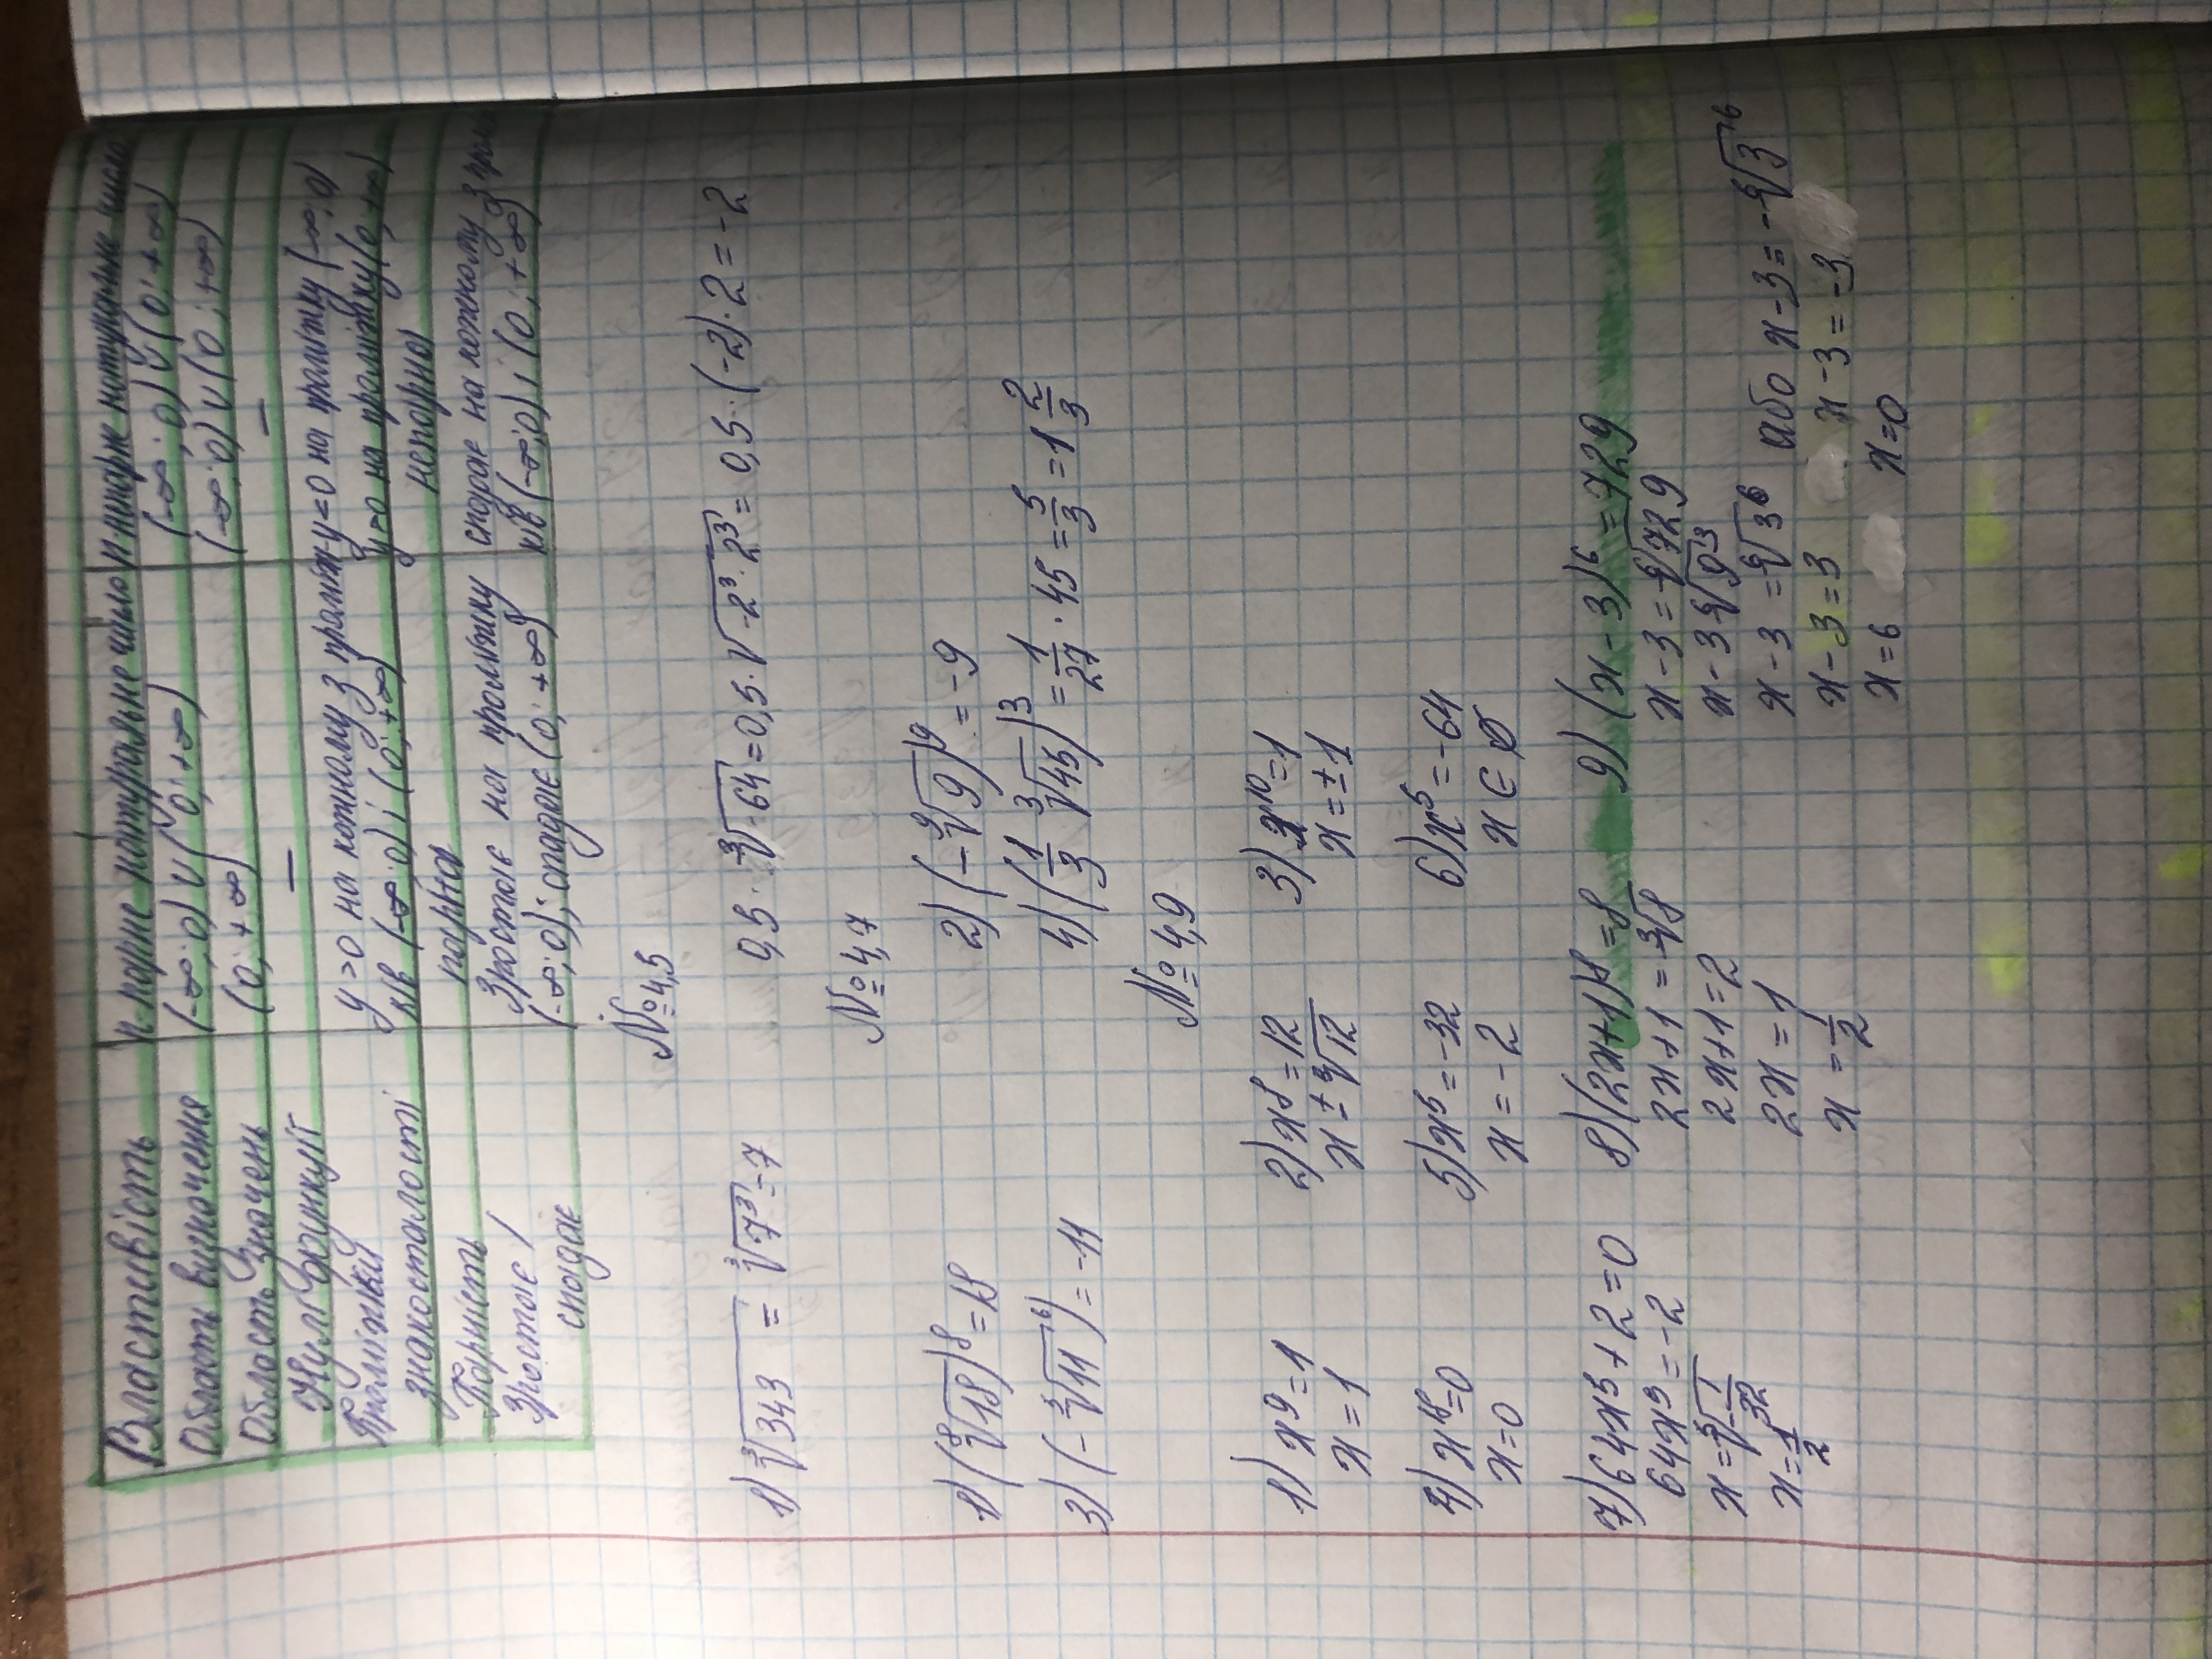 Властивість n-парне натуральне число n-непарне натуральне число
Область визначення (-∞; 0) ∪ (0; +∞) (-∞; 0) ∪ (0; +∞)
Область значень (0; +∞) (-∞; 0) ∪ (0; +∞)
Нулі функції — —
Проміжки знакосталості y>0 на кожному з проміж- ків (-∞; 0) і (0; +∞) y=0 на проміжку (-∞; 0) y>0 на проміжку (0; +∞)
Парність парна непарна
Зростає / спадає Зростає на проміжку (-∞; 0); спадає (0; +∞) спадає на кожному з пром ків (-∞; 0) і (0; +∞)
№ 4,5
1) ∛343 = ∛7³ = 7 0,5 · ∛-64 = 0,5 · √-2³ · 2³ = 0,5 · (-2) · 2 = -2
№ 4,7
1) (⁸√18)⁸ = 18 2) (-⁹√9)⁹ = -9
3) (-√11)⁶ = -11 4) (1/3 ∛45)³ = 1/27 · 45 = 5/3 = 1 2/3
№ 4,9
1) x⁹ = 1 2) x⁸ = 12 3) x¹⁰ = 1
x = 1 x = ± ⁸√12 x = ±1
4) x¹⁸ = 0 5) x⁵ = -32 6) x⁵ = -64
x = 0 x = -2 x ∈ ∅
7) 64x⁵ + 2 = 0 8) (2x+1)⁴ = 8 9) (x-3)⁶ = 729
64x⁵ = -2 2x+1 = ∛8 x-3 = ⁶√729
x = ⁵√-1/32 2x+1 = 2 x-3 ⁶√9³
x = -1/2 2x = 1 x-3 = ⁶√3⁶ або x-3 = -⁶√3⁶
x = 1/2 x-3 = 3 x-3 = -3
x = 6 x = 0